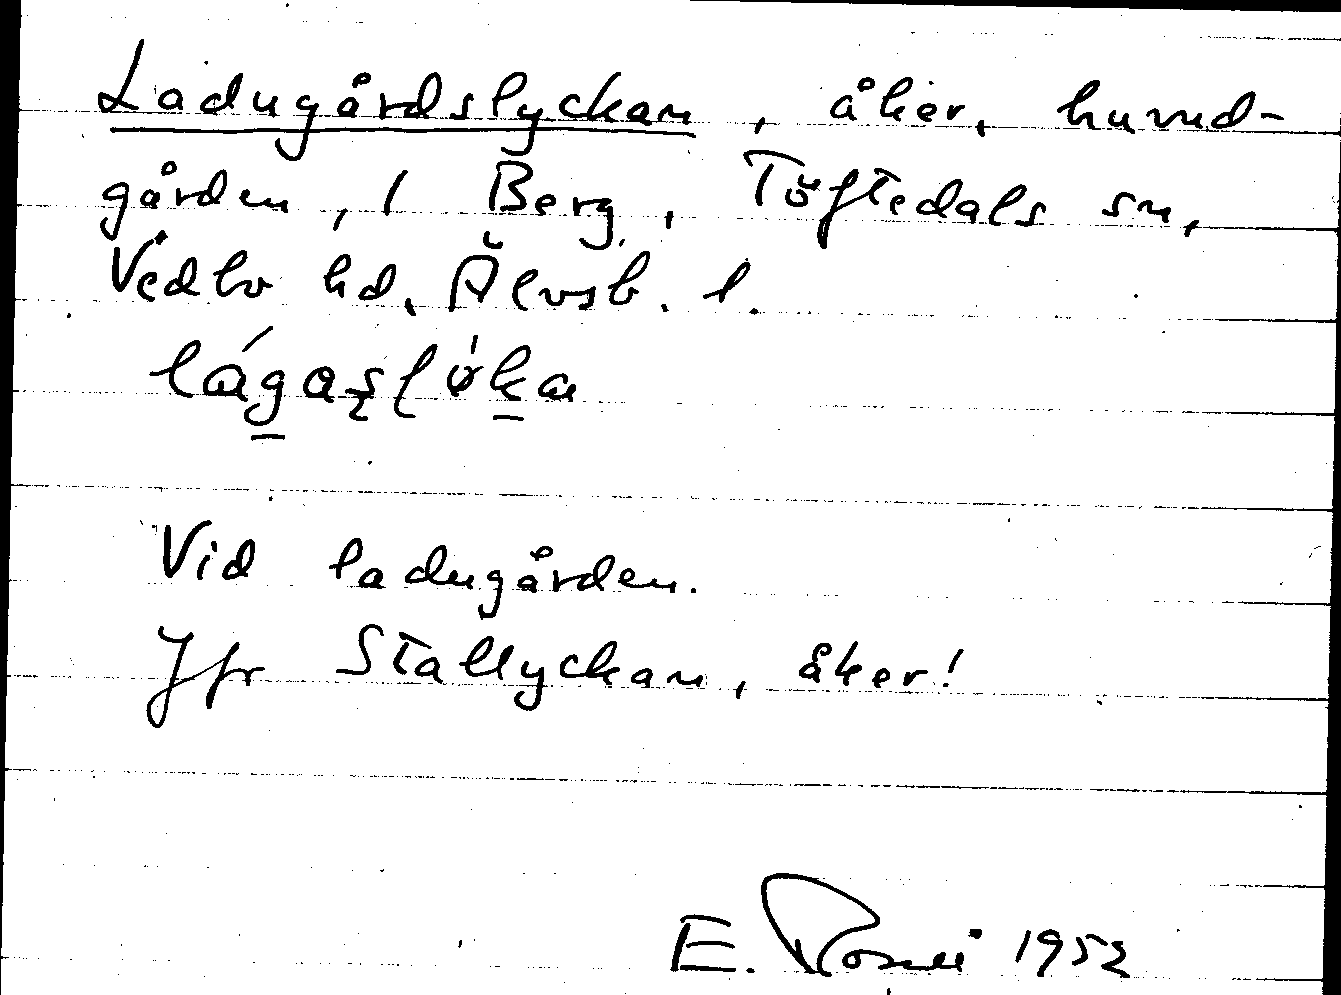 Ladugårdslyckan, åker, huvud-
gården, 1 Berg, Töftedals sn,
Vedbo hd, Älvsb. l.
Vid ladugården.
Jfr Stallyckan, åker!
E. 1952